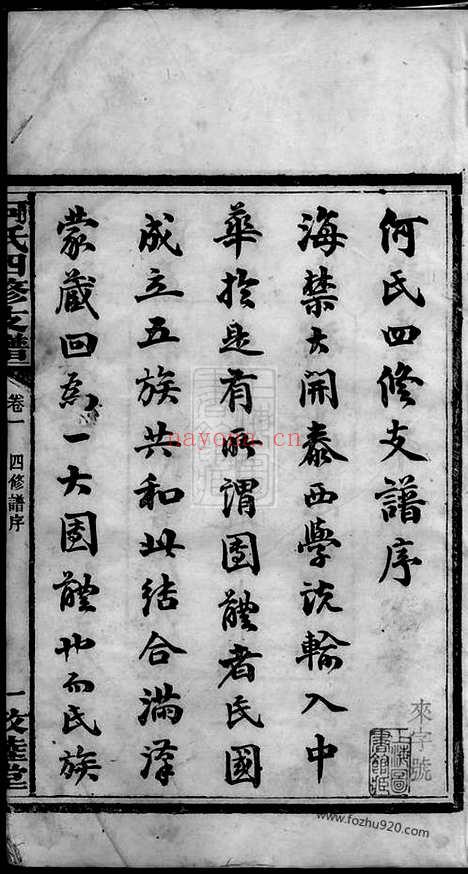 何氏四修支譜序
海禁大開泰西學說輸入中
華於是有所謂團體者民國
成立五族共和此結合滿漢
蒙藏回為一大團體也而民族
何氏四修支譜
卷一
四修譜序
一
敦睦堂
來字號
上海圖書館藏
nayong.cn
www.fozhu920.com